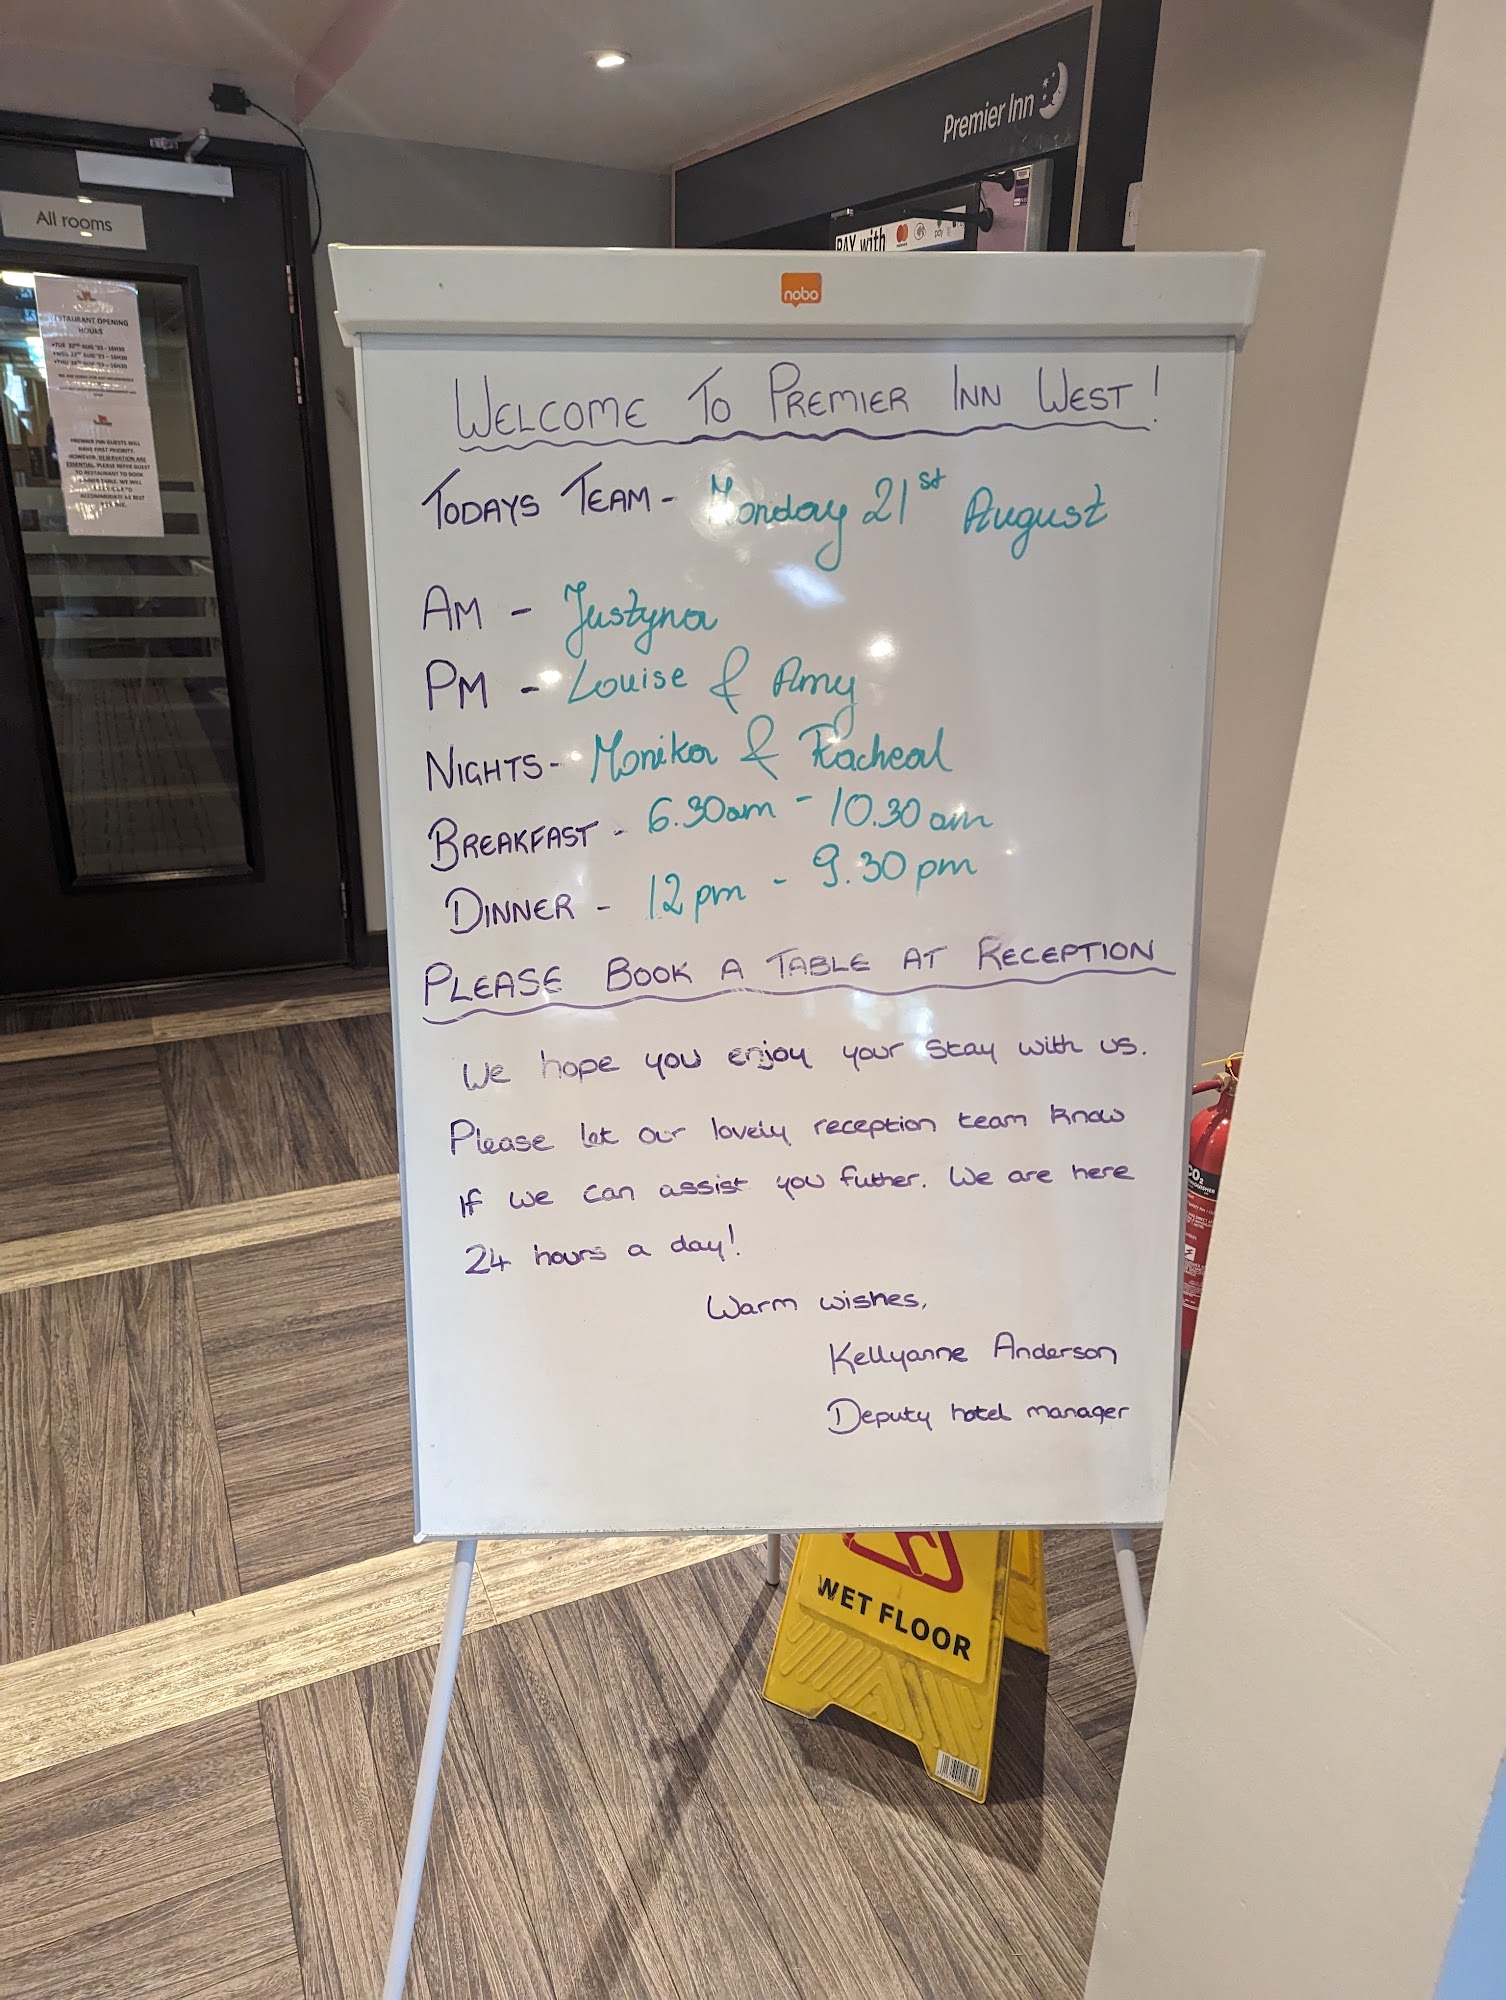 Premier Inn
All rooms
PAY with
nobo
RESTAURANT OPENING
HOURS
PREMIER INN GUESTS WILL
HAVE FIRST PRIORITY.
HOWEVER, RESERVATION ARE
ESSENTIAL. PLEASE REFER GUEST
TO RESTAURANT TO BOOK
WELCOME TO PREMIER INN WEST!
TODAYS TEAM - Monday 21st August
AM - Justyna
PM - Louise & Amy
NIGHTS - Monika & Racheal
BREAKFAST - 6.30am - 10.30am
DINNER - 12pm - 9.30pm
PLEASE BOOK A TABLE AT RECEPTION
We hope you enjoy your stay with us.
Please let our lovely reception team know
if we can assist you futher. We are here
24 hours a day!
Warm wishes,
Kellyanne Anderson
Deputy hotel manager
CO2
WET FLOOR